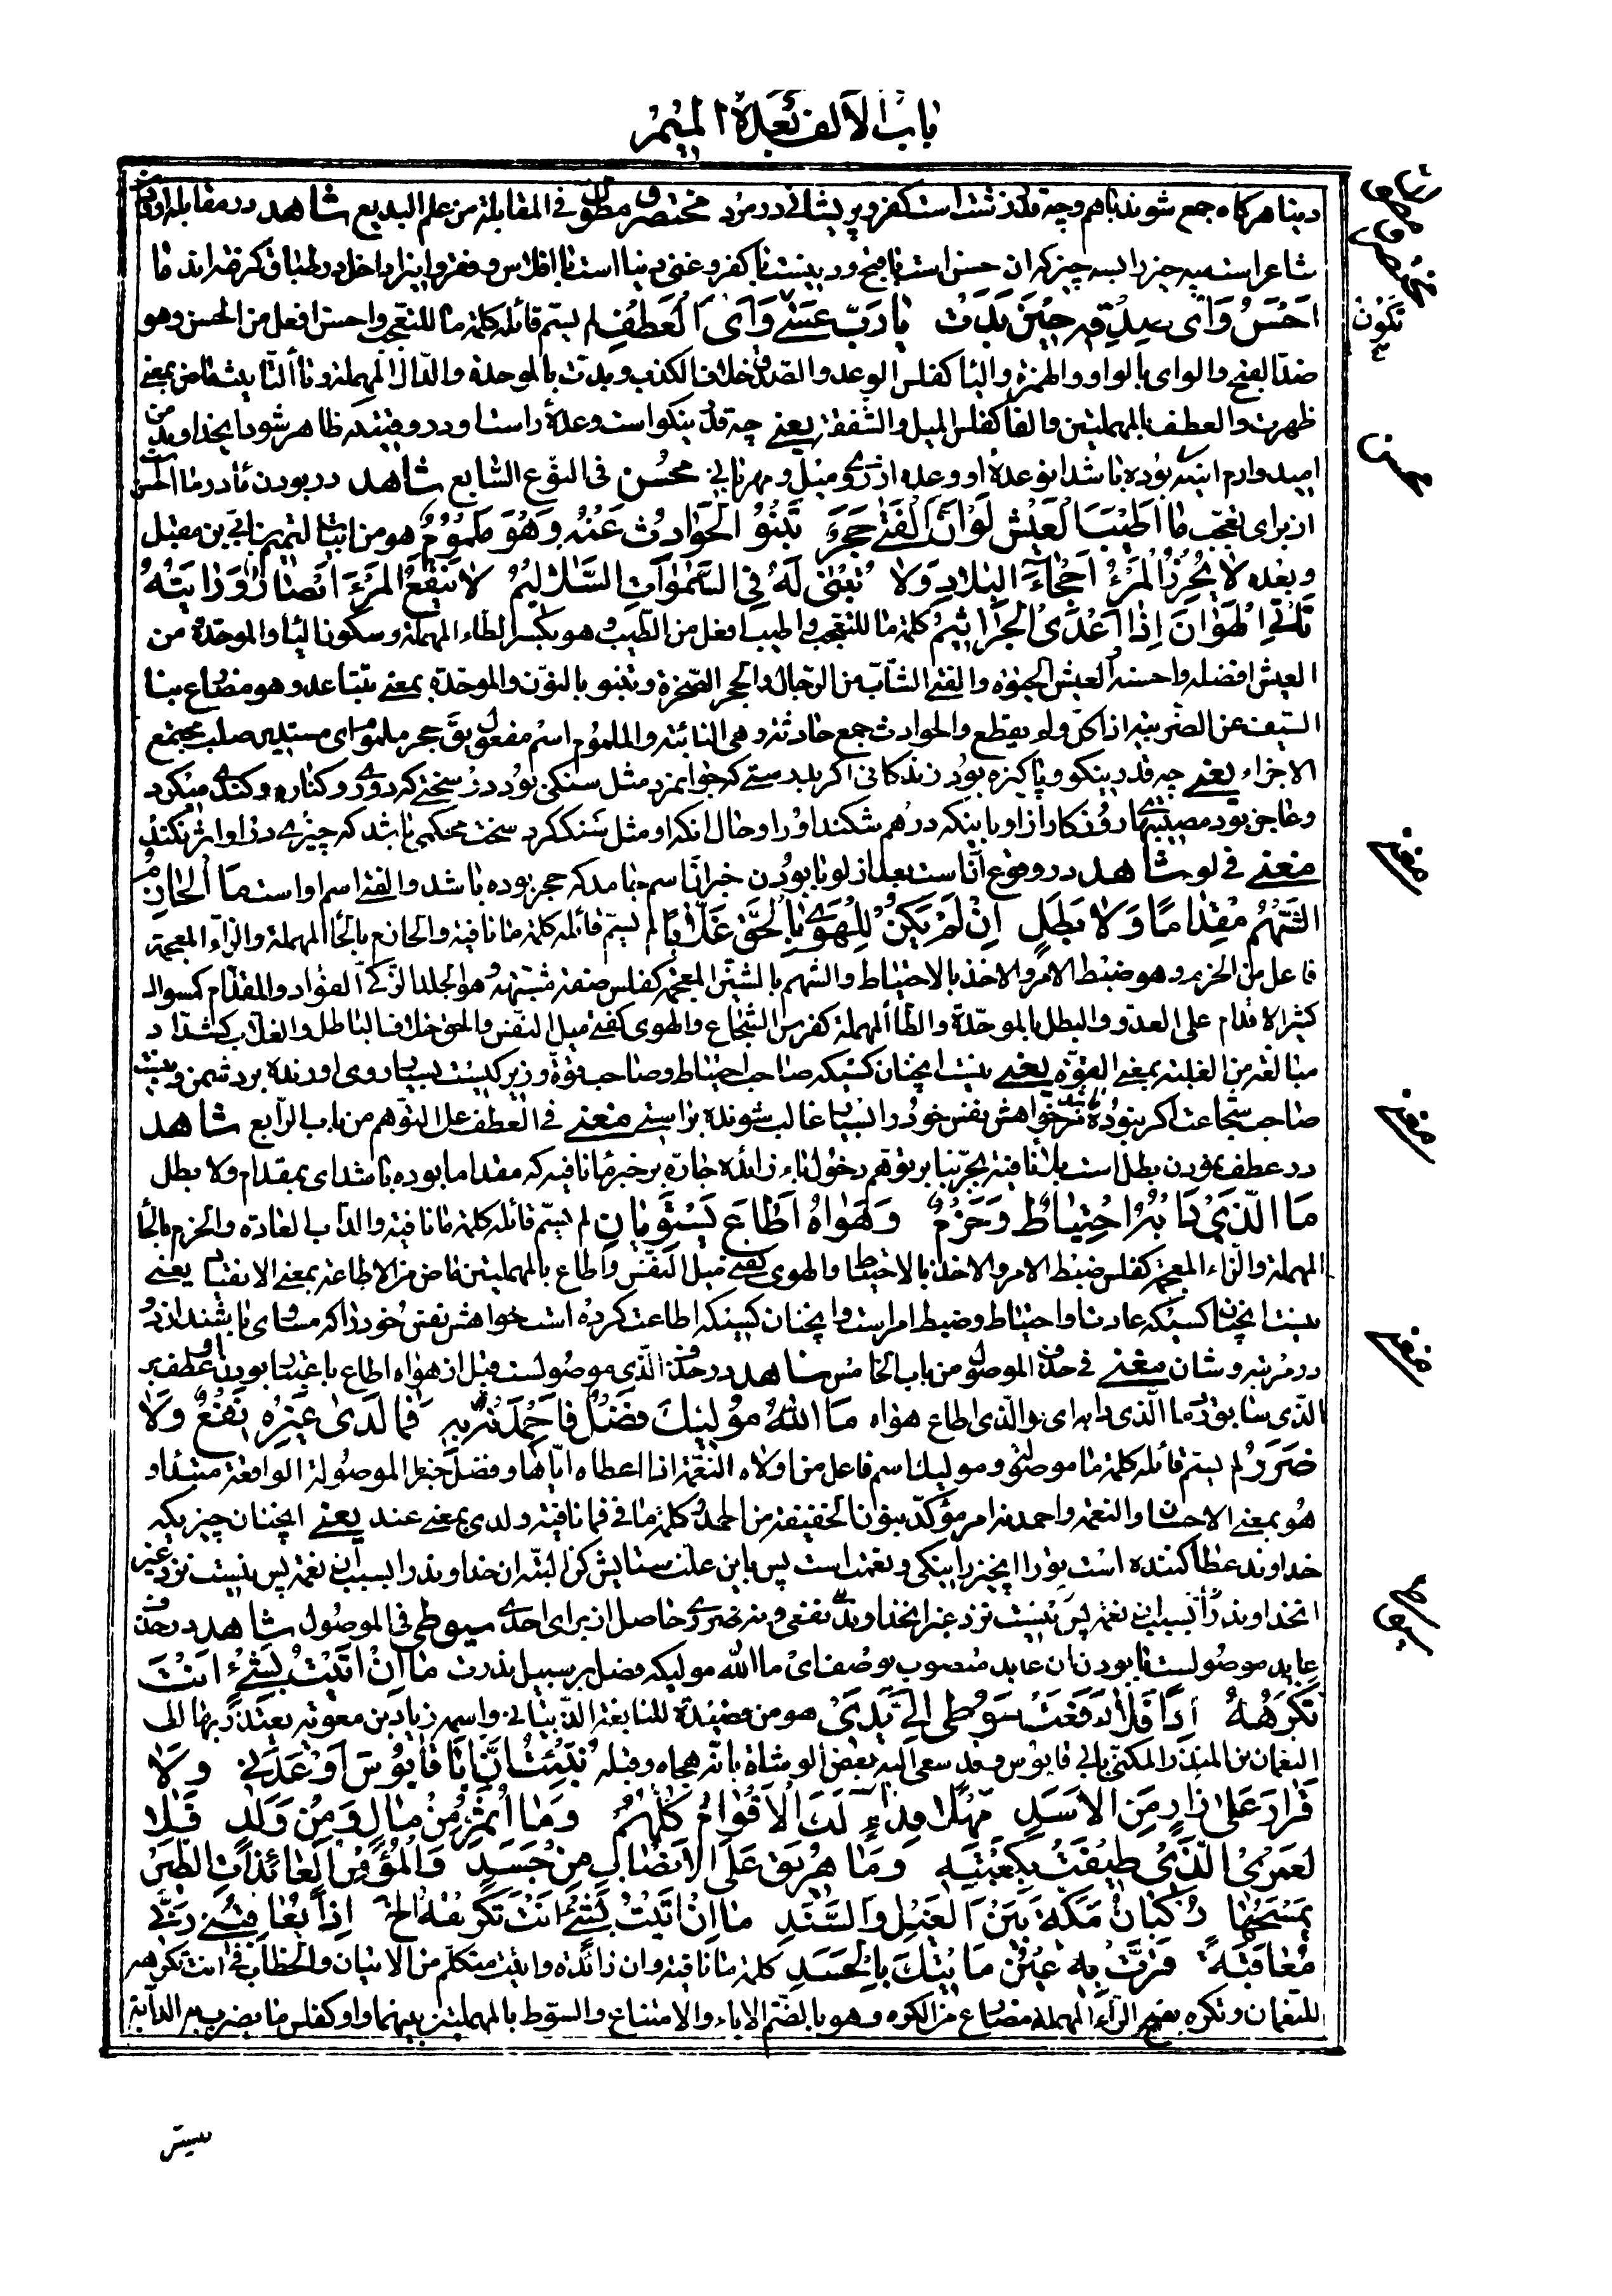 باب الألف بعده الميم
دينا هر گاه جمع شوند با هم و چه قدر زشت است کفر و پريشانی در مرد مختصر و مطول فی المقابلة من علم البديع شاهد در مقابله
شاعر است سه چيز را بسه چيز که ان حسن است با قبح و دينست با کفر و غنی و دنيا است با افلاس و فقر و اين را داخل در طباق کرده اند ما
احسن وأی صدقه حين بدت يا رب عسی وأی العطف لم يسم قائله کلمة ما للتعجب واحسن افعل من الحسن وهو
ضد القبح والوای بالواو والهمزة واليا کفلس الوعد والصدق خلاف الکذب وبدت بالموحدة والدال المهملة وتا التانيث ماض بمعنی
ظهرت والعطف بالمهملتين والفا کفلس الميل والشفقة يعنی چه قدر نيکو است وعدهٔ راست او در وقتيکه ظاهر شود ايخداوند من
اميدوارم اينکه بوده باشد انوعدهٔ او وعده از روی ميل و مهربانی محسن فی النوع السابع شاهد در بودن ما در ما احسن
از برای تعجب ما اطيب العيش لو ان الفتی حجر تنبو الحوادث عنه وهو ملموم هو من ابيات لتميم بن ابی بن مقبل
وبعده لا يحرز المرء احجاء البلاد ولا تبنی له فی السموات السلاليم لا ينفع المرء انصار ورابته
تأبی الهوان اذا عد الجراثيم کلمة ما للتعجب واطيب افعل من الطيب وهو بکسر الطاء المهملة وسکون اليا والموحدة من
العيش افضله واحسنه والعيش الحيوة والفتی الشاب من الرجال والحجر الصخرة وتنبو بالنون والموحدة بمعنی تتباعد وهو مضارع نبا
السيف عن الضريبة اذا کل ولم يقطع والحوادث جمع حادثة وهی النائبة والملموم اسم مفعول يق حجر ملموم ای مستدير صلب مجتمع
الاجزاء يعنی چه قدر نيکو و پاکيزه بود زندگانی اگر بدرستی که جوانمرد مثل سنگی بود در سختی که دوری و کناره و کندی ميکرد
و عاجز بود مصيبتهای روزگار از او باينکه در هم شکند او را و حال انکه او مثل سنگ گرد سخت محکمی باشد که چيزی در او اثر نکند
مغنی فی لو شاهد در وقوع ان است بعد از لو با بودن خبر ان اسم جامد که حجر بوده باشد والفتی اسم او است ما الحازم
الشهم مقداما ولا بطل ان لم يکن للهوی بالحق غلابا لم يسم قائله کلمة ما نافية والحازم بالحا المهملة والزاء المعجمة
فاعل من الحزم وهو ضبط الامر والاخذ بالاحتياط والشهم بالشين المعجمة کفلس صفة مشبهة وهو الجلد الزکی الفؤاد والمقدام کمسواک
کثير الاقدام علی العدو والبطل بالموحدة والطا المهملة کفرس الشجاع والهوی کفتی ميل النفس والحق خلاف الباطل والغلاب کشداد
مبالغة من الغلبة بمعنی القوة يعنی نيست انچنان کسيکه صاحب احتياط و صاحب قوة و زيرکيست بسيار روی اورنده بر دشمن و نيست
صاحب شجاعت اگر نبوده باشد مر خواهش نفس خود را بسيار غالب شونده براستی مغنی فی العطف علی التوهم من باب الرابع شاهد
در عطف نمودن بطل است بلاء نافية بجر بنا بر توهم دخول باء زائده جاره بر خبر ما نافيه که مقداما بوده باشد ای بمقدام ولا بطل
ما الذی دأبه احتياط وحزم وهواه اطاع يستويان لم يسم قائله کلمة ما نافية والداب العادة والحزم بالحا
المهملة والزاء المعجمة کفلس ضبط الامر والاخذ بالاحتياط والهوی کفتی ميل النفس واطاع بالمهملتين ماض من الاطاعة بمعنی الانقياد يعنی
نيست انچنان کسيکه عادت او احتياط و ضبط امر است و انچنان کسيکه اطاعت کرده است خواهش نفس خود را که مساوی باشند اندو
در مرتبه و شان مغنی فی حذف الموصول من باب الخامس شاهد در حذف الذی موصولست قبل از هواه اطاع باعتبار بودن او عطف بر
الذی سابق ای ما الذی دابه ای والذی اطاع هواه ما الله موليک فضل فاحمدنه به فما لدی غيره نفع ولا
ضرر لم يسم قائله کلمة ما موصوله وموليک اسم فاعل من اولاه النعمة اذا اعطاه اياها وفضل خبر ما الموصولة الواقعة مبتدا و
هو بمعنی الاحسان والنعمة واحمدنه امر مؤکد بنون الخفيفة من الحمد وکلمة ما فی فما نافية ولدی بمعنی عند يعنی انچنان چيزيکه
خداوند عطا کننده است بتو را انچيز را نيکی و نعمت است پس باين علت ستايش کن البته ان خداوند را بسبب ان نعمة پس نيست نزد غير
انخداوند را بسبب ان نعمة پس نيست نزد غير انخداوند نفعی و نه ضرری حاصل از برای احدی سيوطی فی الموصول شاهد در حذف
عايد موصولست با بودن ان عايد منصوب بوصف ای ما الله موليکه فضل بر سبيل ندرت ما ان اتيت بشیء انت
تکرهه اذا فلا رفعت سوطی الی يدی هو من قصيدة للنابغة الذبيانی واسمه زياد بن معوية يعتذر بها الی
النعمان بن المنذر المکنی بابی قابوس وقد سعی اليه بعض الوشاة بانه هجاه وقبله نبئت ان ابا قابوس اوعدنی ولا
قرار علی زأر من الاسد مهلا فداء لک الاقوام کلهم وما اثمر من مال ومن ولد فلا
لعمری الذی طيفت بکعبته وما هريق علی الانصاب من جسد والمؤمن العائذات الطير
يمسحها رکبان مکة بين الغيل والسند ما ان اتيت بشیء انت تکرهه الخ اذا يعاقبنی ربی
معاقبة قرت به عين من ياتيک بالحسد کلمة ما نافية وان زائدة واتيت متکلم من الاتيان والخطاب فی انت تکرهه
للنعمان وتکره بفتح الراء المهملة مضارع من الکره وهو بالضم الاباء والامتناع والسوط بالمهملتين بينهما واو کفلس ما يضرب به الدابة
تکون
محسن
مغنی
مغنی
مغنی
سيوطی